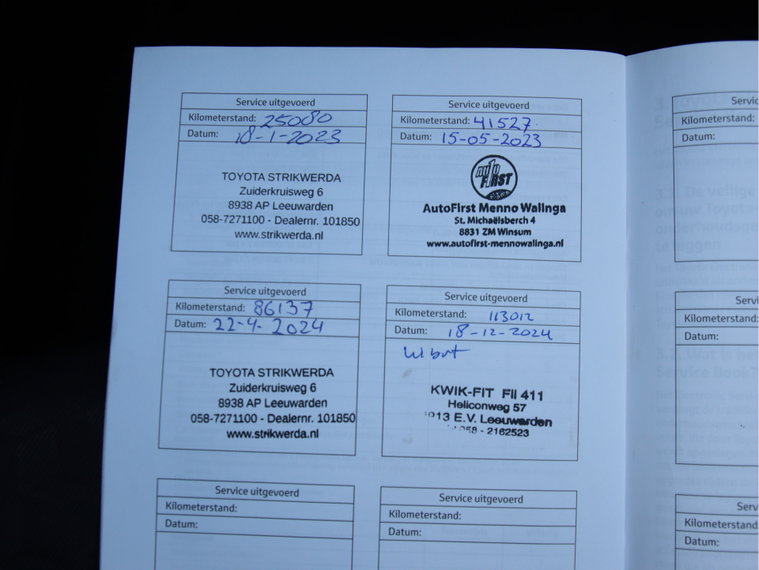 Service uitgevoerd
Kilometerstand: 25080
Datum: 18-1-2023
TOYOTA STRIKWERDA
Zuiderkruisweg 6
8938 AP Leeuwarden
058-7271100 - Dealernr. 101850
www.strikwerda.nl
Service uitgevoerd
Kilometerstand: 41527
Datum: 15-05-2023
auto
FIRST
AutoFirst Menno Walinga
St. Michaëlsberch 4
8831 ZM Winsum
www.autofirst-mennowalinga.nl
Service uitgevoerd
Kilometerstand: 86137
Datum: 22-4-2024
TOYOTA STRIKWERDA
Zuiderkruisweg 6
8938 AP Leeuwarden
058-7271100 - Dealernr. 101850
www.strikwerda.nl
Service uitgevoerd
Kilometerstand: 113012
Datum: 18-12-2024
KWIK-FIT FIl 411
Heliconweg 57
013 E.V. Leeuwarden
058 - 2162523
Service uitgevoerd
Kilometerstand:
Datum:
Service uitgevoerd
Kilometerstand:
Datum:
Servic
Kilometerstand:
Datum:
Servi
Kilometerstand:
Datum:
Serv
Kilometerstand
Datum: